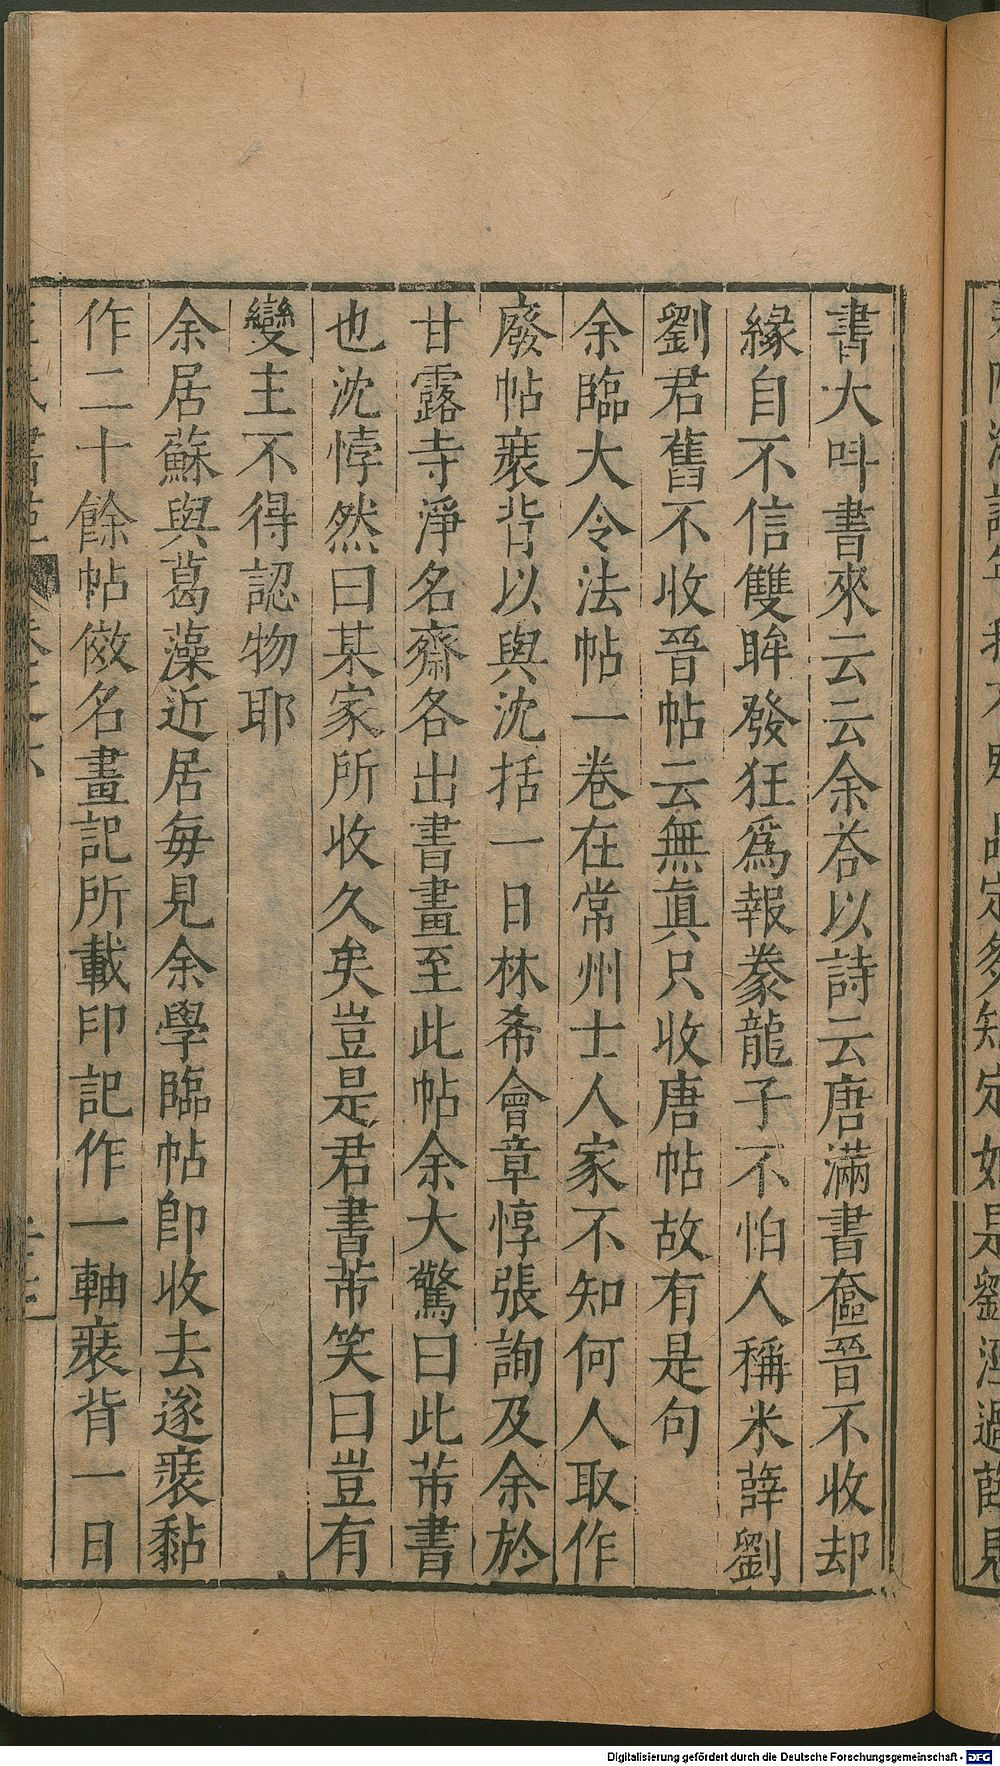 書大呌書來云云余荅以詩云唐滿書奩晉不收却
緣自不信雙眸發狂爲報豢龍子不怕人稱米薛劉
劉君舊不收晉帖云無眞只收唐帖故有是句
余臨大令法帖一卷在常州士人家不知何人取作
廢帖裝背以與沈括一日林希會章惇張詢及余於
甘露寺淨名齋各出書畫至此帖余大驚曰此芾書
也沈悖然曰某家所收久矣豈是君書芾笑曰豈有
變主不得認物耶
余居蘇與葛藻近居每見余學臨帖卽收去遂裝黏
作二十餘帖倣名畫記所載印記作一軸裝背一日
Digitalisierung gefördert durch die Deutsche Forschungsgemeinschaft - DFG